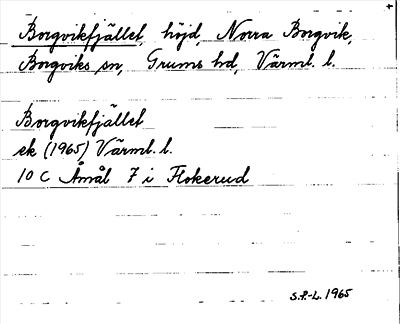 Borgvikfjället, höjd, Norra Borgvik,
Borgviks sn, Grums hd, Värml. l.
Borgvikfjället
ek (1965) Värml. l.
10 C Åmål 7 i Flokerud
S.P.-L. 1965